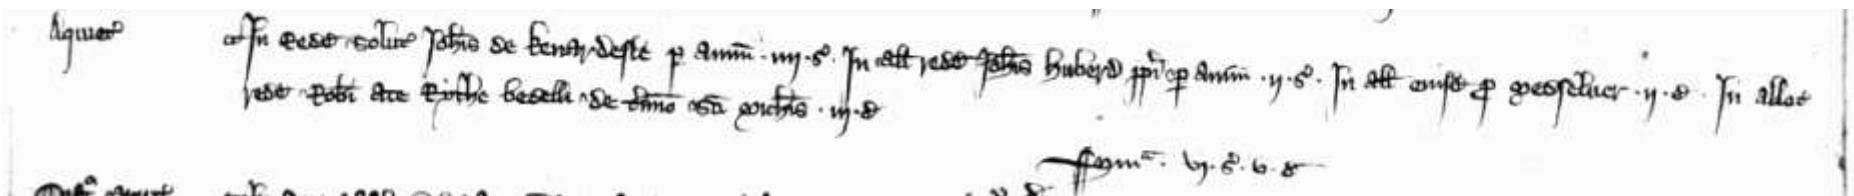 Aquiet
In redd solut Johis de kenardeste p annu · iiij · s · In all redd Johis huberd ppi p annu · ij · s · In all eiusd p messeluer · ij · d · In alloc
redd Robi ate Rithe bedelli de dimo sci michis · iij · d
Summa · vj · s · v · d